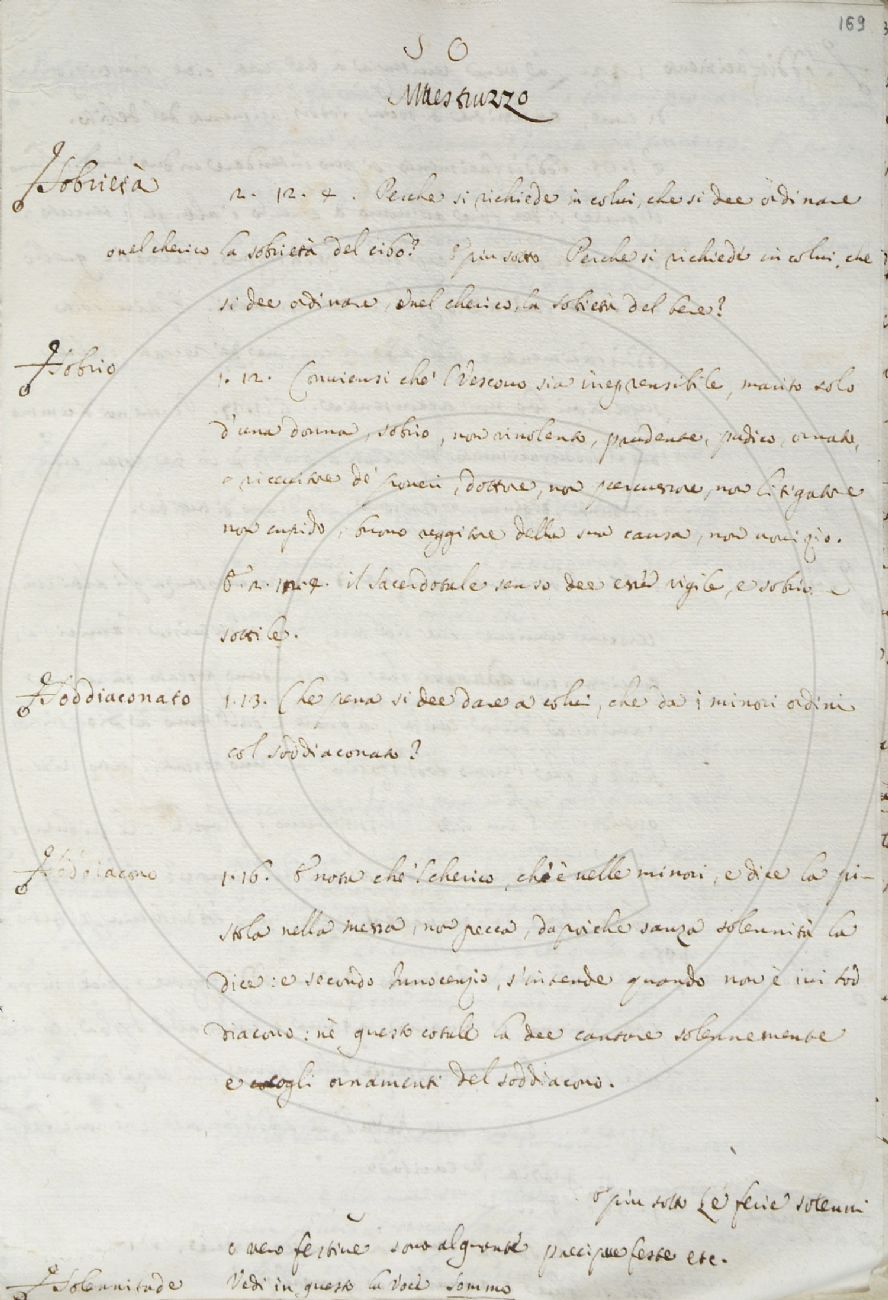 169
SO
Maestruzzo
Sobrietà 2. 12. 4. Perche si richiede in colui, che si dee ordinare
o nel cherico la sobrietà del cibo? E più sotto Perche si richiede in colui, che
si dee ordinare, o nel cherico, la sobrietà del bere?
Sobrio 1. 12. Conviensi che'l Vescovo sia inreprensibile, marito solo
d'una donna, sobrio, non vinolento, prudente, pudico, ornato,
e ricevitore de' poveri, dottore, non percussore, non litigatore
non cupido, buono reggitore della sua causa, non novizio.
E 2. 12. 4. il Sacerdotale senso dee esser vigile, e sobrio e
sottile.
Soddiaconato 1. 13. Che pena si dee dare a colui, che da i minori ordini
col soddiaconato?
Soddiacono 1. 16. E nota che'l cherico, ch'è nelle minori, e dice la pi-
stola nella messa, non pecca, dapoiche sanza solennità la
dice: e secondo Innocenzio, s'intende quando non è ivi sod
diacono: nè questo cotale la dee cantare solennemente
e cogli ornamenti del soddiacono.
E più sotto Le ferie solenni
o vero festive sono alquante precipue feste etc.
Solennitade Vedi in questo la voce Sommo